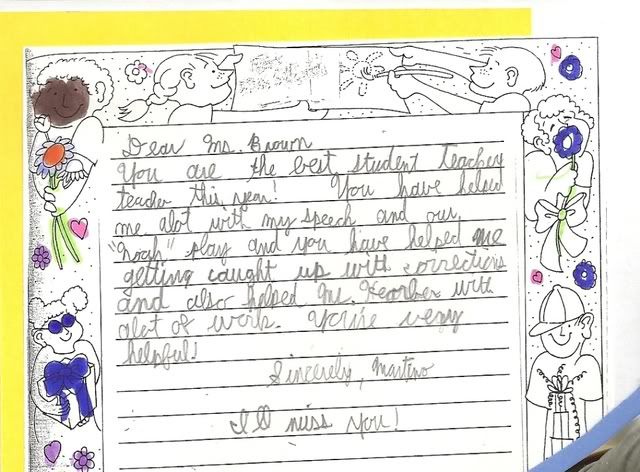 Dear Ms. Brown
You are the best student teachery
teacher this year! You have helsed
me alot with my speech and our
"noah" play and you have helped me
getting caught up with corrections
and also helped Ms. with
alot of work. You're very
helpful!
Sincerely, Martino
I'll miss you!